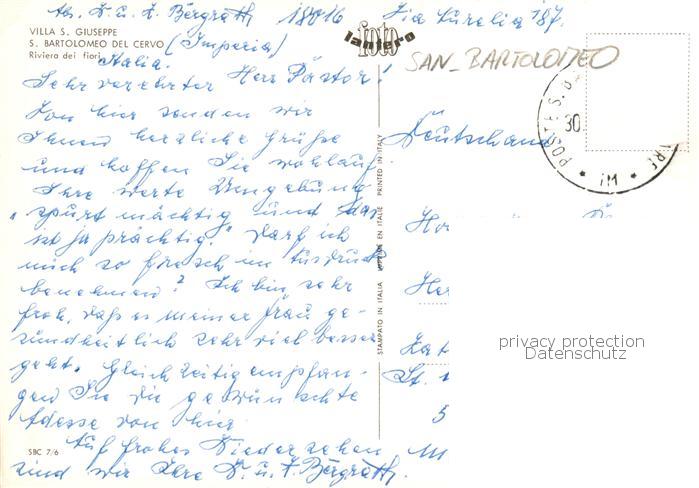 Abs. D. u. F. Bergrath 18016 Via Aurelia 187.
VILLA S. GIUSEPPE
S. BARTOLOMEO DEL CERVO (Imperia)
Riviera dei fiori Italia.
foto
lantero
SAN-BARTOLOMEO
Sehr verehrter Herr Pastor!
Von hier senden wir
Ihnen herzliche Grüße
und hoffen Sie wohlauf.
Ihre werte Umgebung
"spurt mächtig und das
ist ja prächtig." Darf ich
mich so frech im Ausdruck
benehmen? Ich bin sehr
froh, daß es meiner Frau ge-
sundheitlich sehr viel besser
geht. Gleichzeitig empfan-
gen Sie die gewünschte
Adresse von hier.
Auf frohes Wiedersehen
sind wir Ihre D. u. F. Bergrath.
SBC 7/6
STAMPATO IN ITALIA IMPRIMÉ EN ITALIE PRINTED IN ITALY
Deutschland
POSTE S. B
30.
* IM *
St.
5
privacy protection
Datenschutz